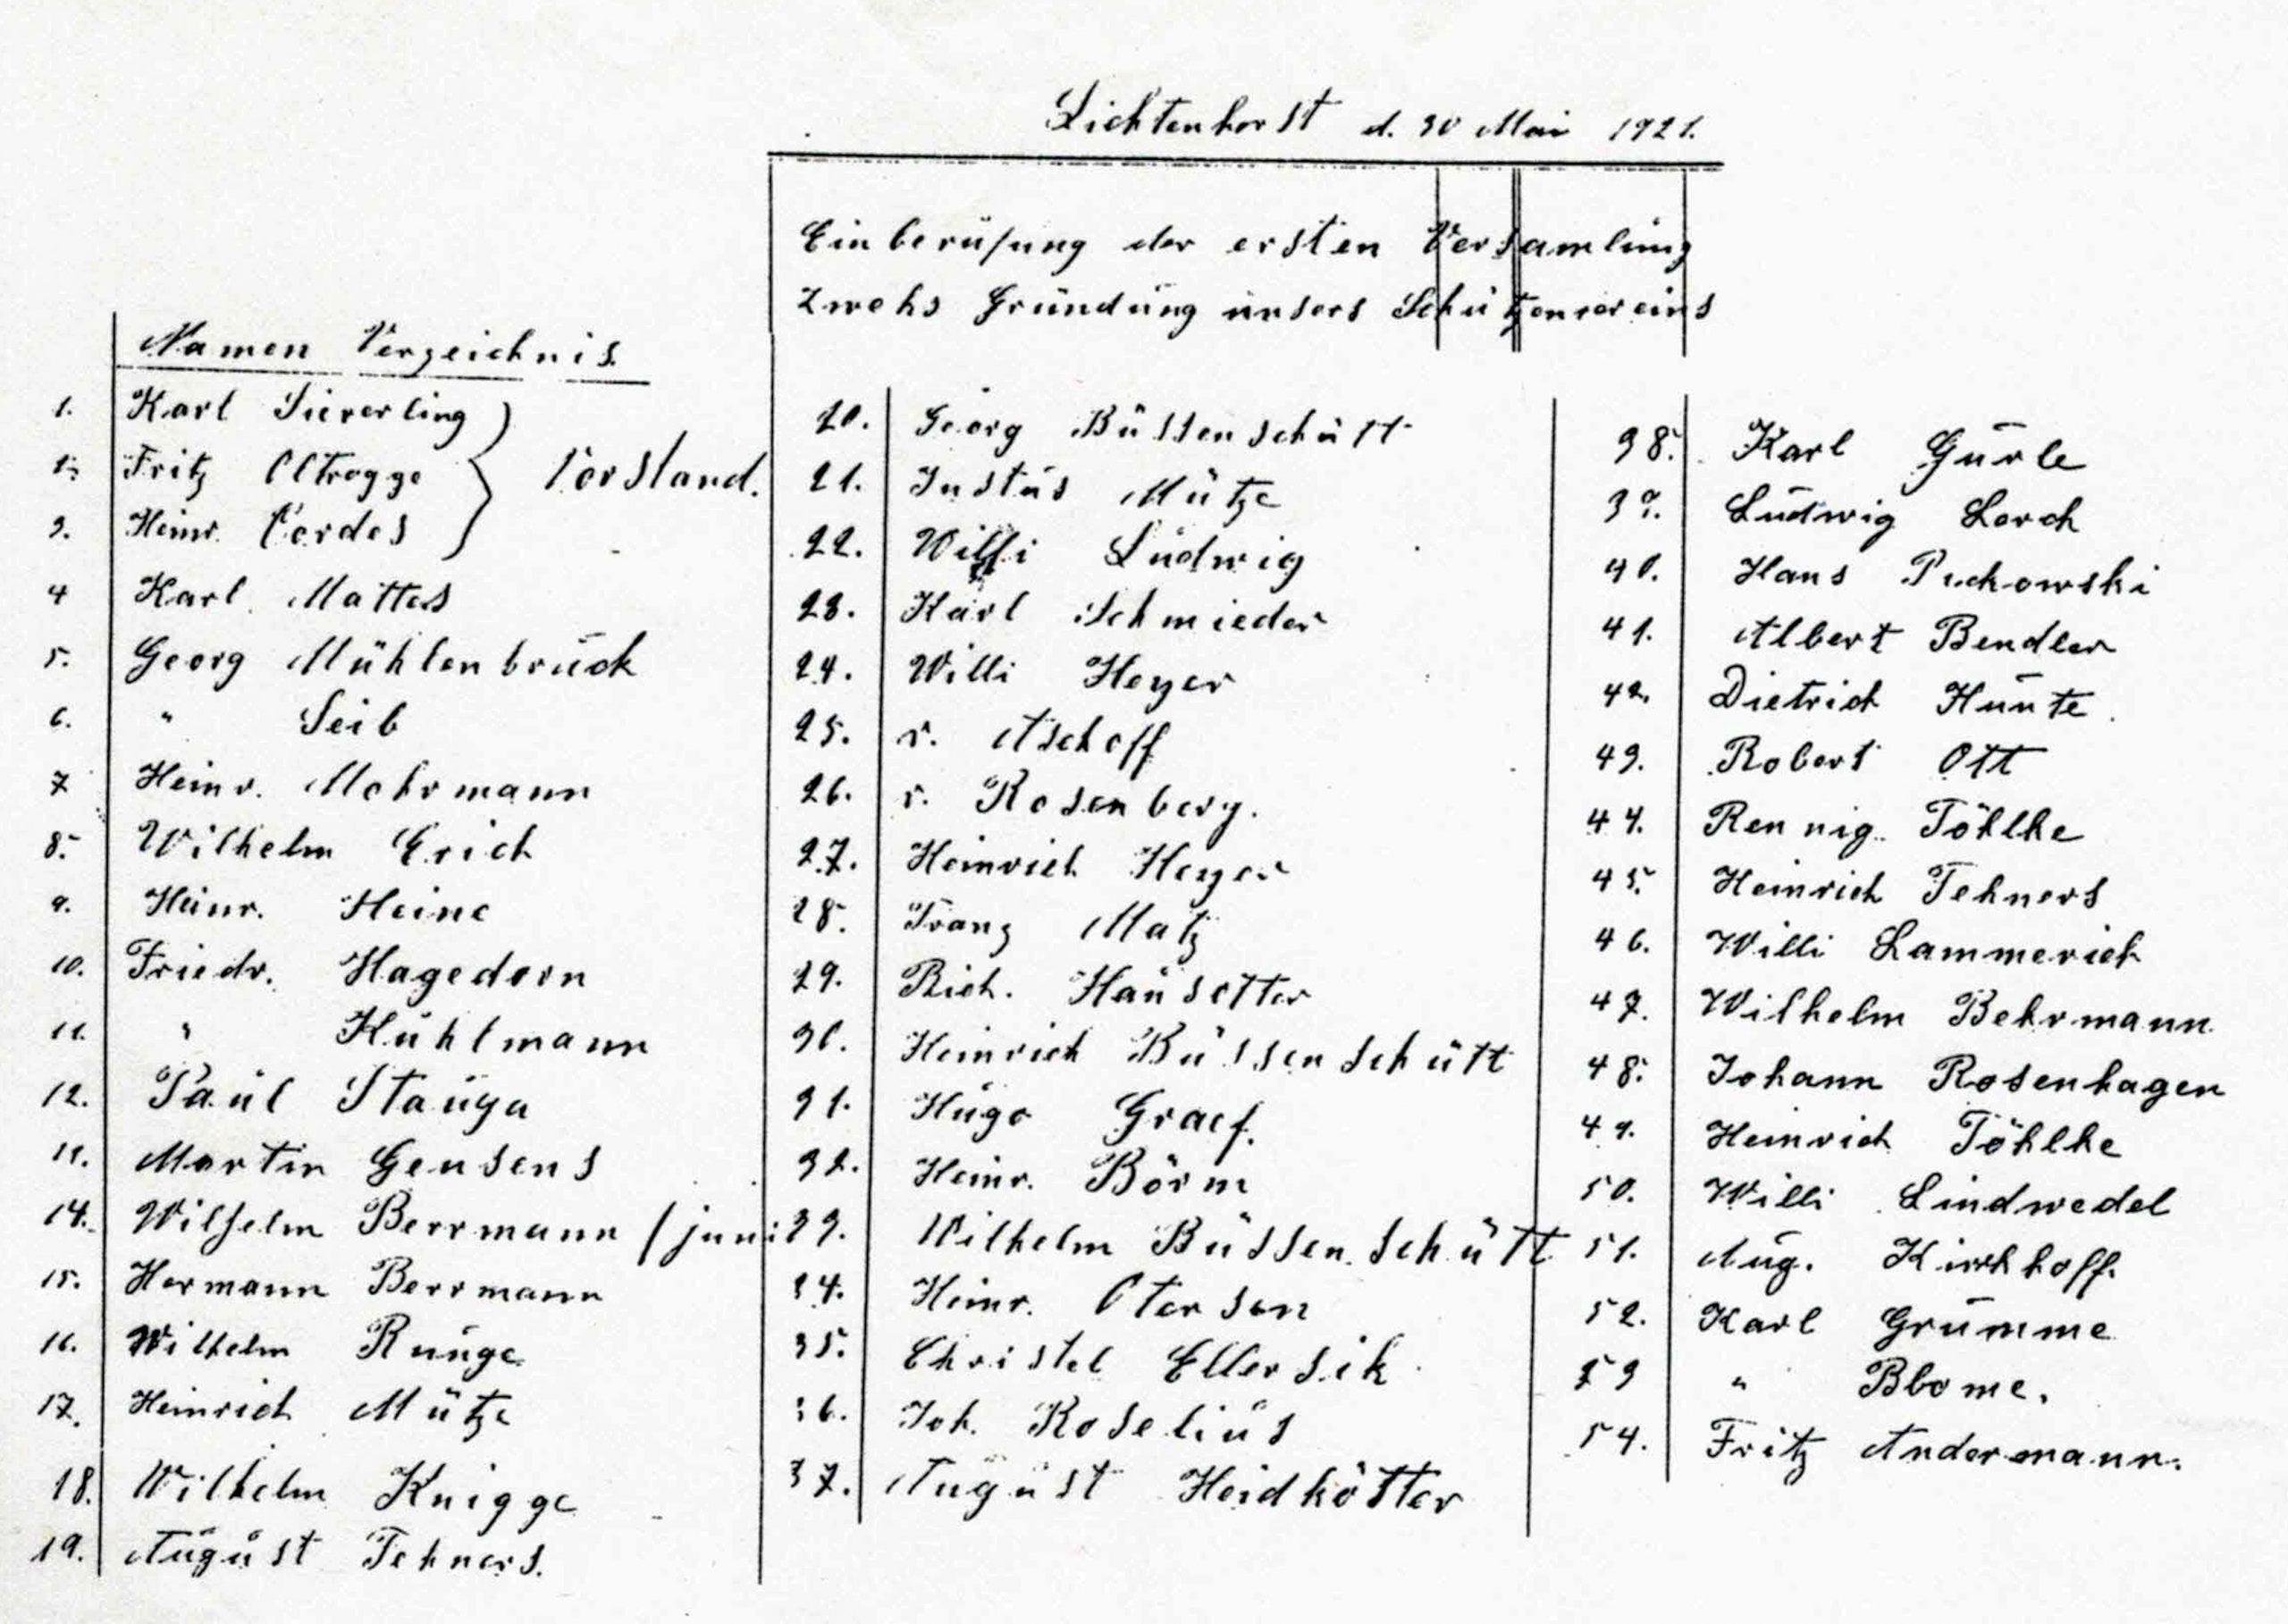 Lichtenhorst d. 30 Mai 1921.
Einberufung der ersten Versamlung
zweks Gründung unsers Schützenvereins
Namen Verzeichnis.
1. Karl Sieverling
2. Fritz Oltrogge } Vorstand.
3. Heinr. Cordes
4 Karl Mattes
5. Georg Mühlenbruch
6. " Seib
7 Heinr. Mohrmann
8. Wilhelm Erich
9. Heinr. Heine
10. Friedr. Hagedorn
11. " Kuhlmann
12. Paul Stauga
13. Martin Geusens
14. Wilhelm Berrmann / juni
15. Hermann Berrmann
16. Wilhelm Runge
17. Heinrich Mütze
18. Wilhelm Knigge
19. August Tehners.
20. Georg Büssenschütt
21. Justus Mütze
22. Willi Ludwig
23. Karl Schmieder
24. Willi Heyer
25. v. Aschoff
26. v. Rosenberg.
27. Heinrich Heyer
28. Franz Matz
29. Rich. Hausotter
30. Heinrich Büssenschütt
31. Hugo Graef.
32. Heinr. Börm
33. Wilhelm Büssenschütt
34. Heinr. Otersen
35. Christel Ellersik
36. Joh. Roselius
37. August Heidkötter
38. Karl Gurle
39. Ludwig Lorch
40. Hans Puchowski
41. Albert Bendler
42. Dietrich Hunte
43. Robert Ott
44. Rennig Töhlke
45. Heinrich Tehners
46. Willi Lammerich
47. Wilhelm Behrmann
48. Johann Rosenhagen
49. Heinrich Töhlke
50. Willi Lindwedel
51. Aug. Kirchhoff.
52. Karl Grumme
53 " Blome.
54. Fritz Andermann.